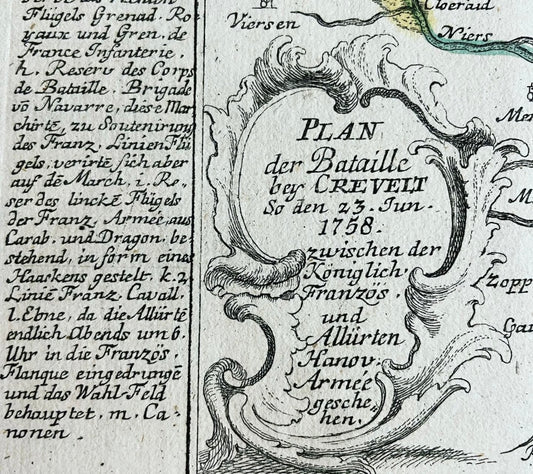 Flügels Grenad. Ro-
yaux und Gren. de
France Infanterie.
h. Reserv des Corps
de Bataille. Brigade
võ Navarre, diese Mar
chirtẽ, zu Soutenirung
des Franz. Linien Flü
gels, verirtẽ sich aber
auf dẽ March, i. Re,
ser des linckẽ Flügels
der Franz. Armée, aus
Carab. und Dragon. be-
stehend, in form eines
Haarkens gestelt. k. 2.
Linië Franz. Cavall.
l. Ebne, da die Allürtẽ
endlich Abends um 6.
Uhr in die Französ.
Flanque eingedrungẽ
und das Wahl-Feld
behauptet. m. Ca-
nonen.
Viersen
Cloeraid
Niers
PLAN
der Bataille
bey CREVELT
So den 23. Jun.
1758.
zwischen der
Königlich
Französ.
und
Allürten
Hanov.
Armée
gesche-
hen.